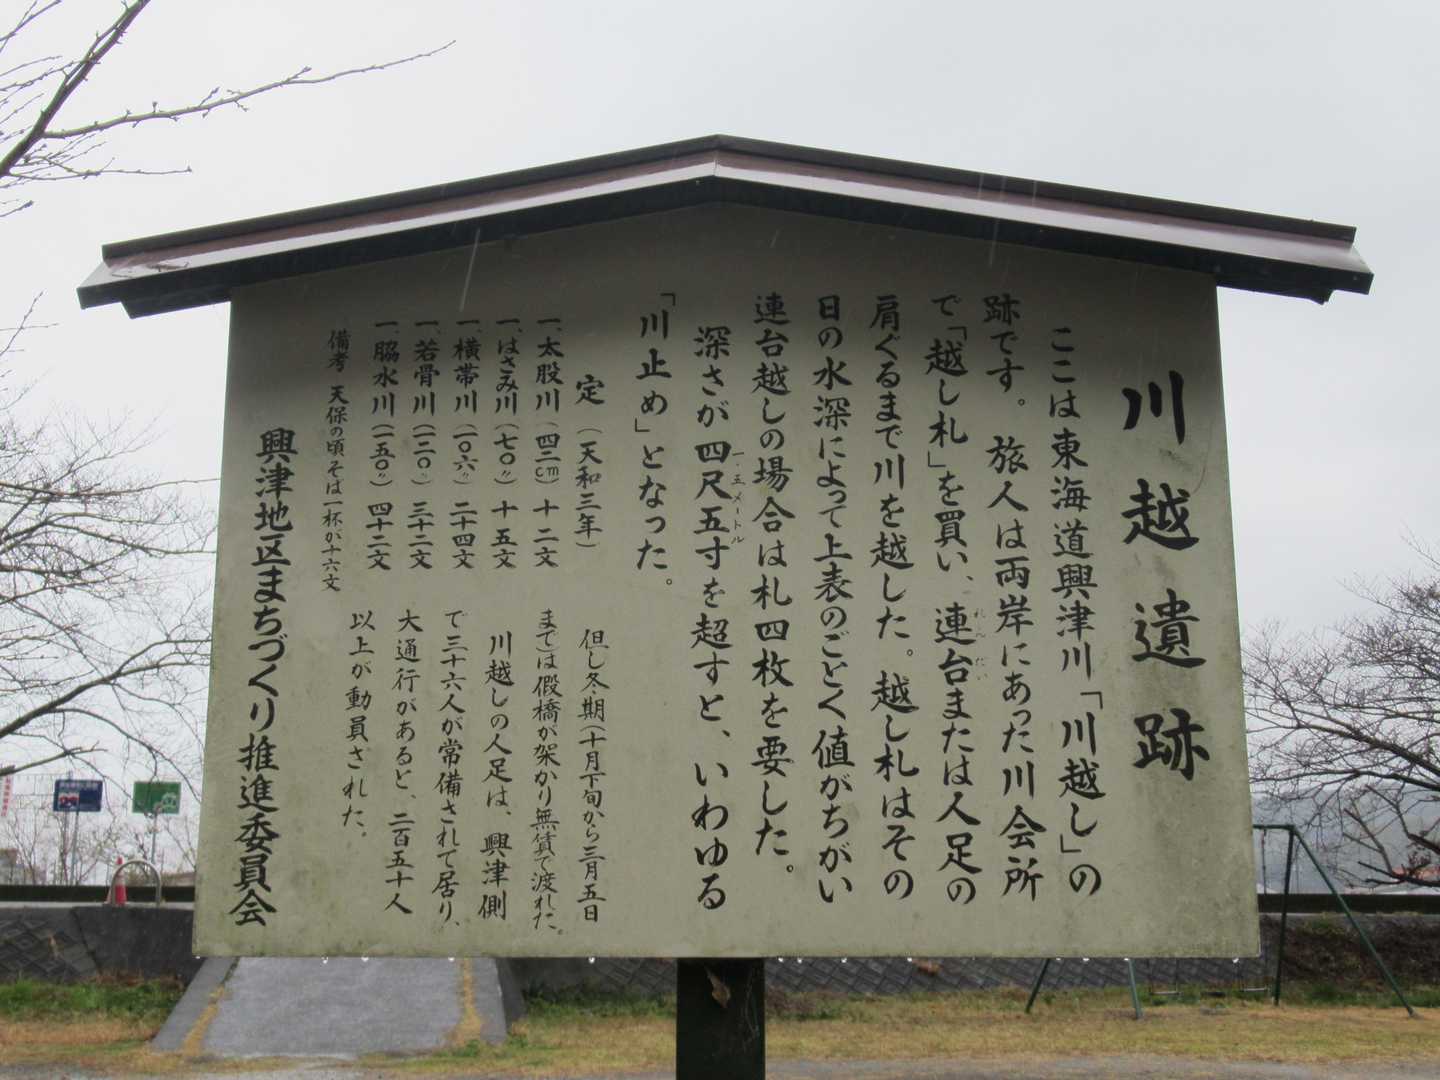 川越遺跡
ここは東海道興津川「川越し」の
跡です。旅人は両岸にあった川会所
で「越し札」を買い、連台または人足の
れんだい
肩ぐるまで川を越した。越し札はその
日の水深によって上表のごとく値がちがい
連台越しの場合は札四枚を要した。
深さが四尺五寸を超すと、いわゆる
一・五メートル
「川止め」となった。
定(天和三年)
一、太股川(四二cm)十二文
一、はさみ川(七〇〃)十五文
一、横帯川(一〇六〃)二十四文
一、若骨川(一二〇〃)三十二文
一、脇水川(一五〇〃)四十二文
備考 天保の頃そば一杯が十六文
但し冬期(十月下旬から三月五日
まで)は假橋が架かり無賃で渡れた。
川越しの人足は、興津側
で三十六人が常備されて居り、
大通行があると、二百五十人
以上が動員された。
興津地区まちづくり推進委員会